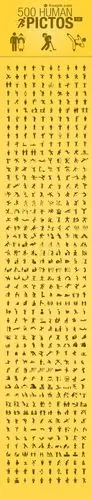 freepik.com
500 HUMAN
PICTOS